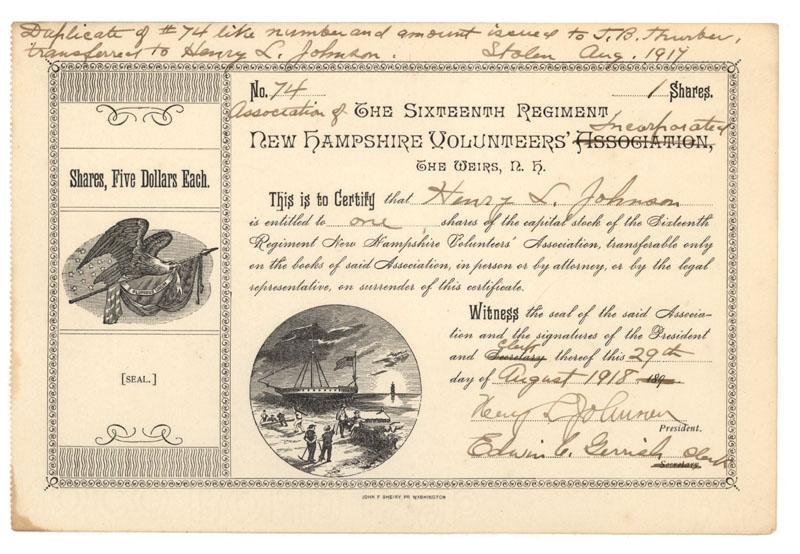 Duplicate of #74 like number and amount issued to J. B. Thurber,
transferred to Henry L. Johnson. Stolen Aug. 1917
No. 74
1 Shares.
Association of THE SIXTEENTH REGIMENT
Incorporated
NEW HAMPSHIRE VOLUNTEERS' ASSOCIATION,
THE WEIRS, N. H.
Shares, Five Dollars Each.
[SEAL.]
This is to Certify that Henry L. Johnson
is entitled to one shares of the capital stock of the Sixteenth
Regiment New Hampshire Volunteers' Association, transferable only
on the books of said Association, in person or by attorney, or by the legal
representative, on surrender of this certificate.
Witness the seal of the said Associa-
tion and the signatures of the President
Clerk
and Secretary thereof this 29th
day of August 1918 189
Henry L Johnson
President.
Edwin C. Gerrish Clerk
Secretary.
JOHN F SHEIRY PR WASHINGTON